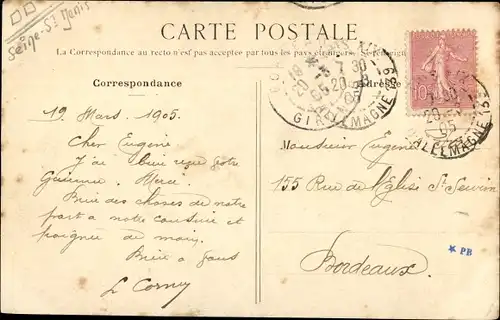 Seine-St Denis
CARTE POSTALE
La Correspondance au recto n'est pas acceptée par tous les pays étrangers. Se renseigner
Correspondance
19 Mars 1905.
Cher Eugène
J'ai bien reçu votre
Guienne. Merci
Bien des choses de notre
part a notre cousine et
poignée de main.
Bien a vous
L Corny
Adresse
Monsieur Eugène
155 Rue de l'Eglise St Seurin
Bordeaux.
7 30
20 -3
05
R. D'ALLEMAGNE 139
GIRONDE
10
* PB